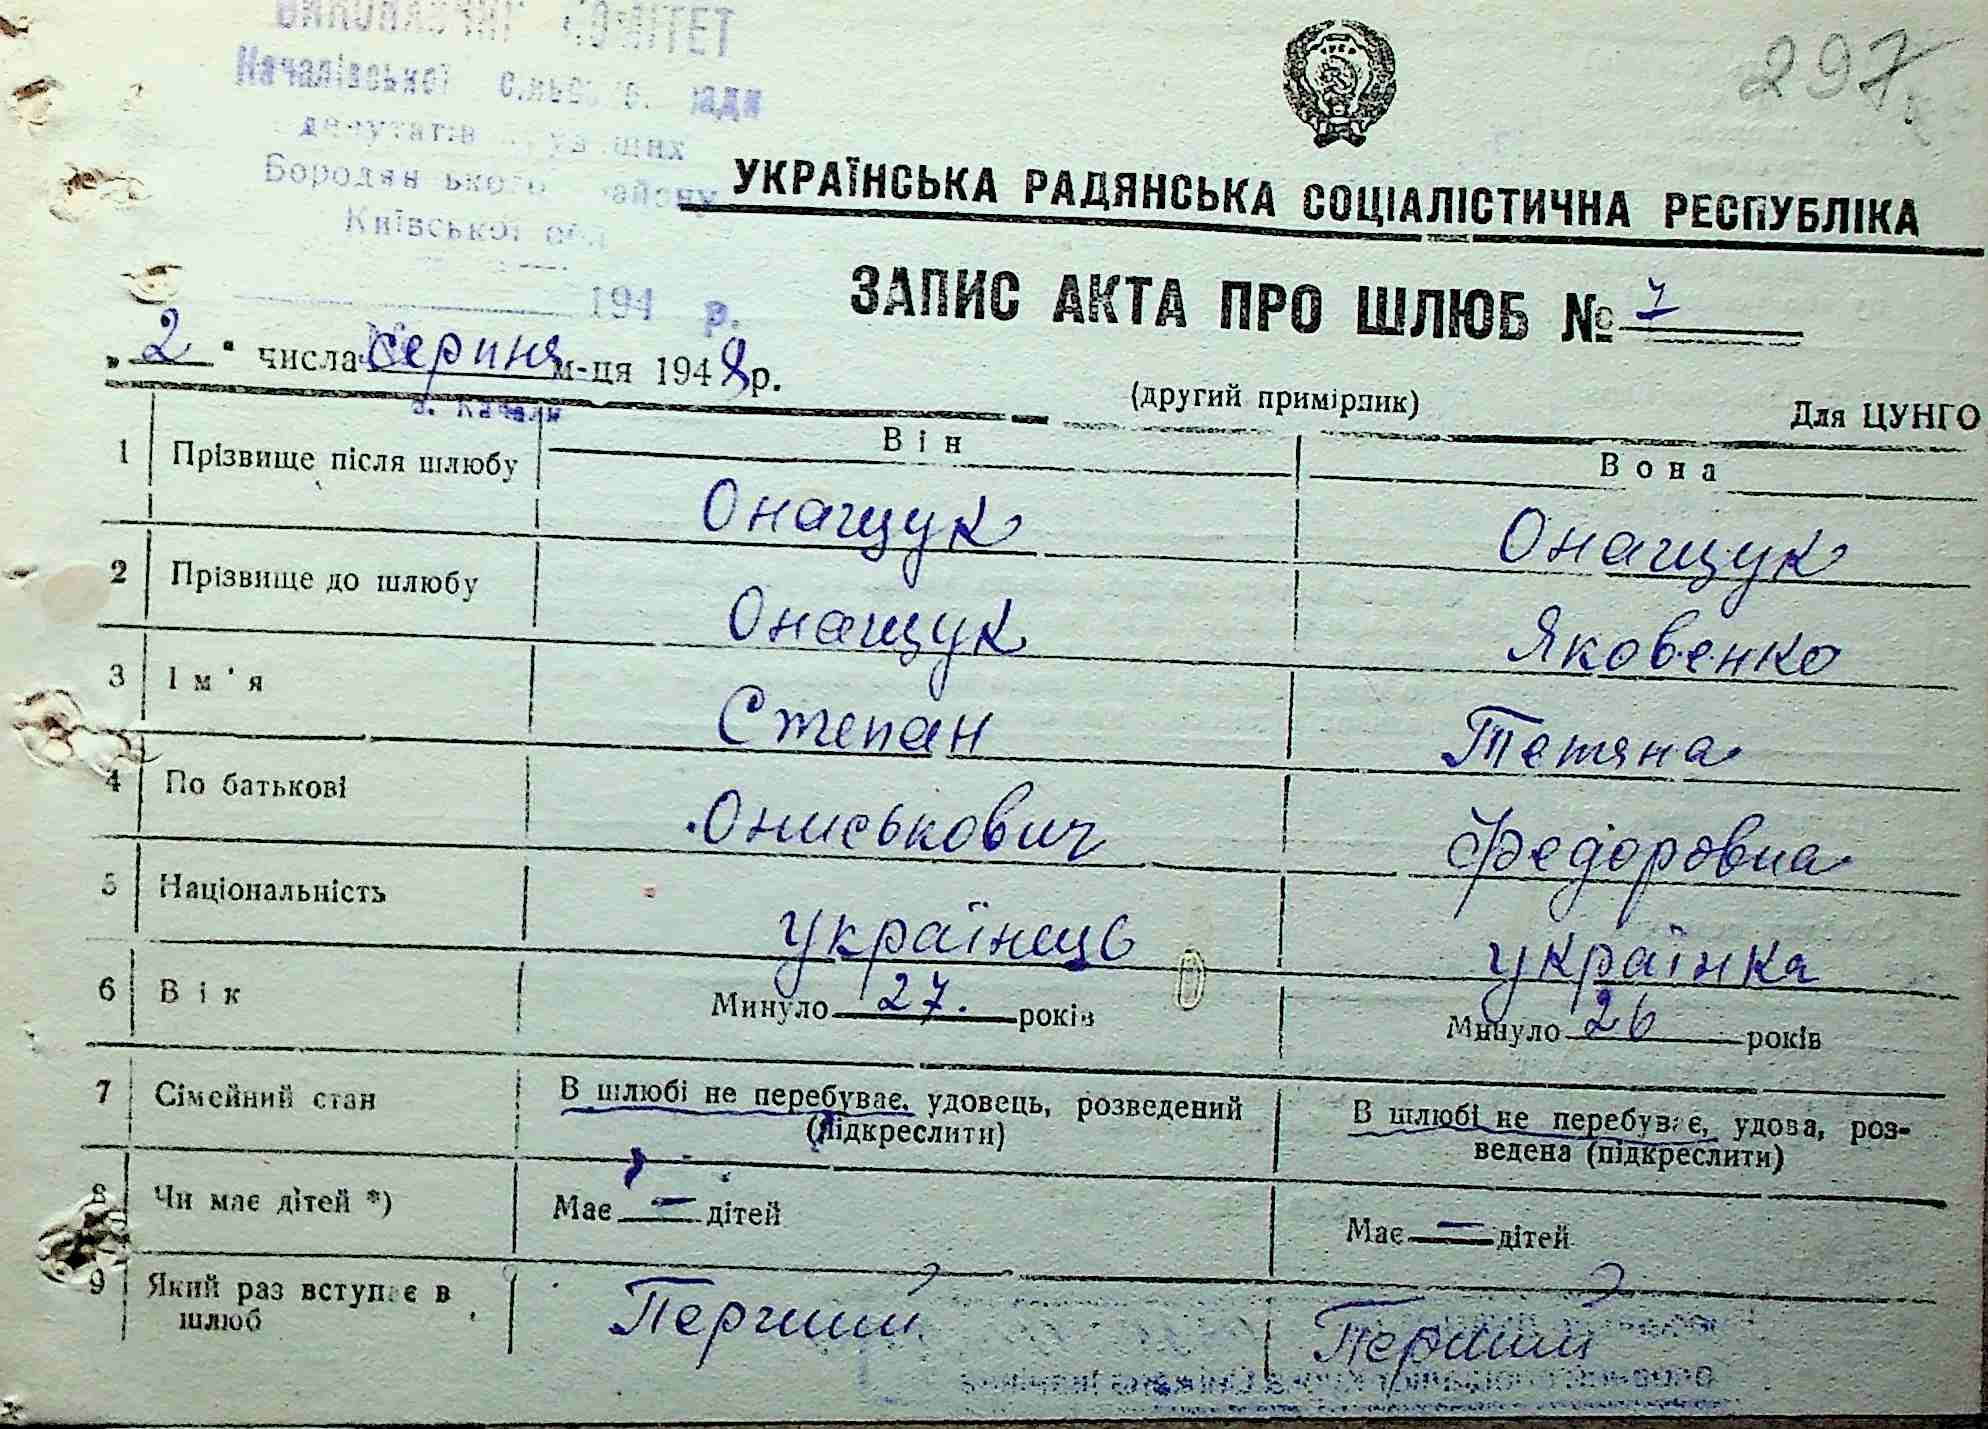 ВИКОНАВЧИЙ КОМІТЕТ
Качалівської сільської ради
депутатів трудящих
Бородянського району
Київської обл.
194 р.
с. Качали
297
УКРАЇНСЬКА РАДЯНСЬКА СОЦІАЛІСТИЧНА РЕСПУБЛІКА
ЗАПИС АКТА ПРО ШЛЮБ № 7
„2“ числа серпня м-ця 1948 р.
(другий примірник)
Для ЦУНГО
Він Вона
1 Прізвище після шлюбу Онащук Онащук
2 Прізвище до шлюбу Онащук Яковенко
3 Ім'я Степан Тетяна
4 По батькові Ониськович Федоровна
5 Національність українець українка
6 Вік Минуло 27. років Минуло 26 років
7 Сімейний стан В шлюбі не перебуває, удовець, розведений (підкреслити) В шлюбі не перебуває, удова, роз-
ведена (підкреслити)
8 Чи має дітей *) Має — дітей Має — дітей
9 Який раз вступає в Перший Перший
шлюб